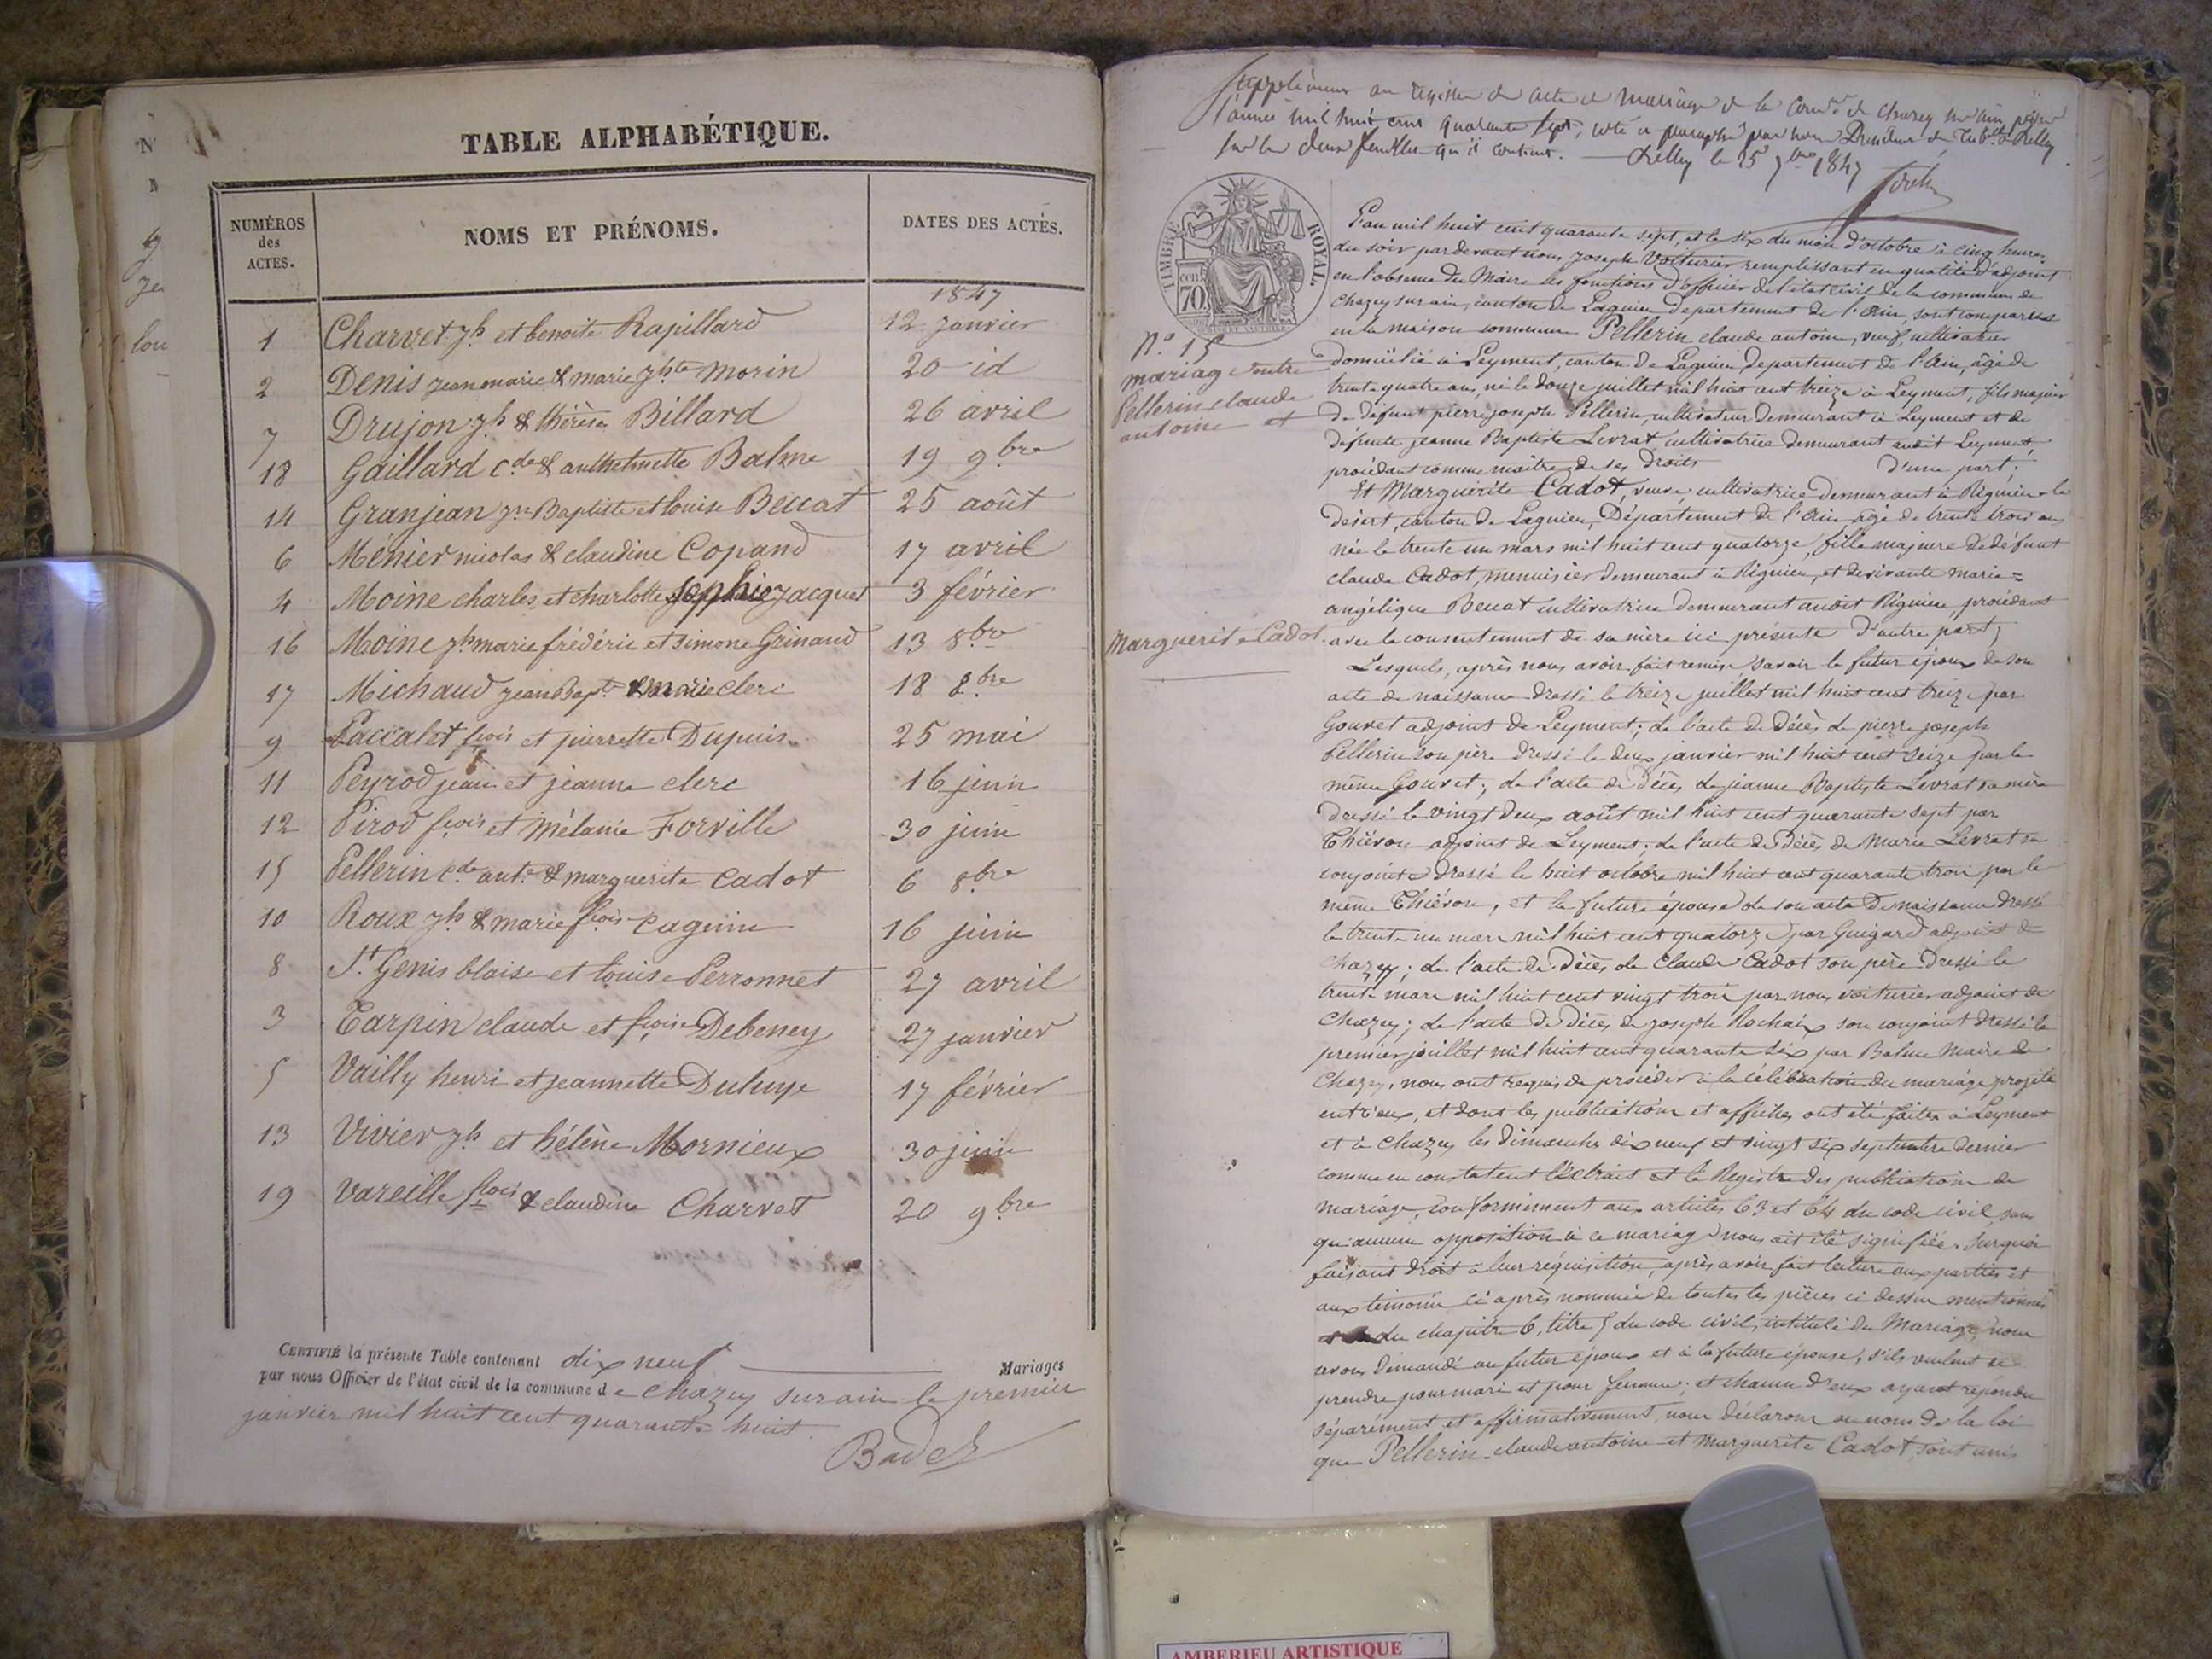 TABLE ALPHABÉTIQUE.
NUMÉROS des ACTES. NOMS ET PRÉNOMS. DATES DES ACTES.
1847
1 Charvet jh et benoite Rapillard 12 janvier
2 Denis jean marie & marie jhte Morin 20 id
7 Drujon jh & thérèse Billard 26 avril
18 Gaillard cde & anthelmette Balme 19 9bre
14 Granjean jn Baptiste et louise Beccat 25 août
6 Ménier nicolas & claudine Copand 17 avril
4 Moine charles et charlotte sophie jacquet 3 février
16 Moine jh marie frédéric et simone Grinand 13 8bre
17 Michaud jean Bapte & marie clerc 18 8bre
9 Paccalet fçois et pierrette Dupuis 25 mai
11 Peyrod jean et jeanne clerc 16 juin
12 Pirod fçois et Mélanie Forville 30 juin
15 Pellerin cde ante & marguerite Cadot 6 8bre
10 Roux jh & marie fçoise Caguin 16 juin
8 St Genis blaise et louise Perronnet 27 avril
3 Tarpin claude et fçoise Debeney 27 janvier
5 Vailly henri et jeannette Duluye 17 février
13 Vivier jh et hélène Mornieux 30 juin
19 Vareille fçois & claudine Charvet 20 9bre
CERTIFIÉ la présente Table contenant dix neuf Mariages
par nous Officier de l'état civil de la commune de Chazey sur ain le premier
janvier mil huit cent quarante huit
Badel
Supplément au registre des actes de mariage de la Comune de Chazey sur Ain pour
l'année mil huit cent quarante sept, coté et paraphé par nous Président du Tribal de Belley
sur les deux feuilles qu'il contient. Belley le 25 7bre 1847
TIMBRE ROYAL
70 cen
L'an mil huit cent quarante sept, et le six du mois d'octobre à cinq heures
du soir pardevant nous joseph Voiturier remplissant en qualité d'adjoint
en l'absence du Maire les fonctions d'officier de l'état civil de la commune de
Chazey sur ain, canton de Lagnieu département de l'Ain, sont comparus
en la maison commune Pellerin claude antoine, veuf, cultivateur
N° 15
mariage entre
Pellerin claude
antoine et
domicilié à Leyment, canton de Lagnieu département de l'Ain, âgé de
trente quatre ans, né le douze juillet mil huit cent treize à Leyment, fils majeur
de défunt pierre joseph Pellerin, cultivateur demeurant à Leyment et de
défunte jeanne Baptiste Levrat cultivatrice demeurant audit Leyment,
procédant comme maître de ses droits d'une part.
Et Marguerite Cadot, veuve, cultivatrice demeurant à Rignieu le
désert, canton de Lagnieu, Département de l'Ain âgé de trente trois ans
née le trente un mars mil huit cent quatorze, fille majeure de défunt
claude Cadot, menuisier demeurant à Rignieu, et de vivante marie=
angélique Beccat cultivatrice demeurant audit Rignieu procédant
Marguerite Cadot.
avec le consentement de sa mère ici présente d'autre part;
Lesquels, après nous avoir fait remise savoir le futur époux de son
acte de naissance dressé le treize juillet mil huit cent treize par
Gouvet adjoint de Leyment; de l'acte de décès de pierre joseph
Pellerin son père dressé le deux janvier mil huit cent seize par le
même Gouvet; de l'acte de décès de jeanne Baptiste Levrat sa mère
dressé le vingt deux août mil huit cent quarante sept par
Thiévon adjoint de Leyment; de l'acte de décès de Marie Levrat sa
conjointe dressé le huit octobre mil huit cent quarante trois par le
même Thiévon, et la future épouse de son acte de naissance dressé
le trente un mars mil huit cent quatorze par Guigard adjoint de
Chazey; de l'acte de décès de Claude Cadot son père dressé le
trente mars mil huit cent vingt trois par nous voiturier adjoint de
Chazey; de l'acte de décès de joseph Rochaix son conjoint dressé le
premier juillet mil huit cent quarante six par Balme Maire de
Chazey, nous ont requis de procéder à la célébration du mariage projeté
entr'eux, et dont les publications et affiches ont été faites à Leyment
et à Chazey les dimanches dix neuf et vingt six septembre dernier
comme en constatent l'extrait et le Registre des publications de
mariage, conformément aux articles 63 et 64 du code civil, sans
qu'aucune opposition à ce mariage nous ait été signifiée. Surquoi
faisant droit à leur réquisition, après avoir fait lecture aux parties et
aux témoins ci après nommés de toutes les pièces ci dessus mentionnées
du chapitre 6, titre 5 du code civil, intitulé du Mariage, nous
avons demandé au futur époux et à la future épouse, s'ils veulent se
prendre pour mari et pour femme; et chacun d'eux ayant répondu
séparément et affirmativement, nous déclarons au nom de la loi
que Pellerin claude antoine et Marguerite Cadot sont unis
AMBERIEU ARTISTIQUE